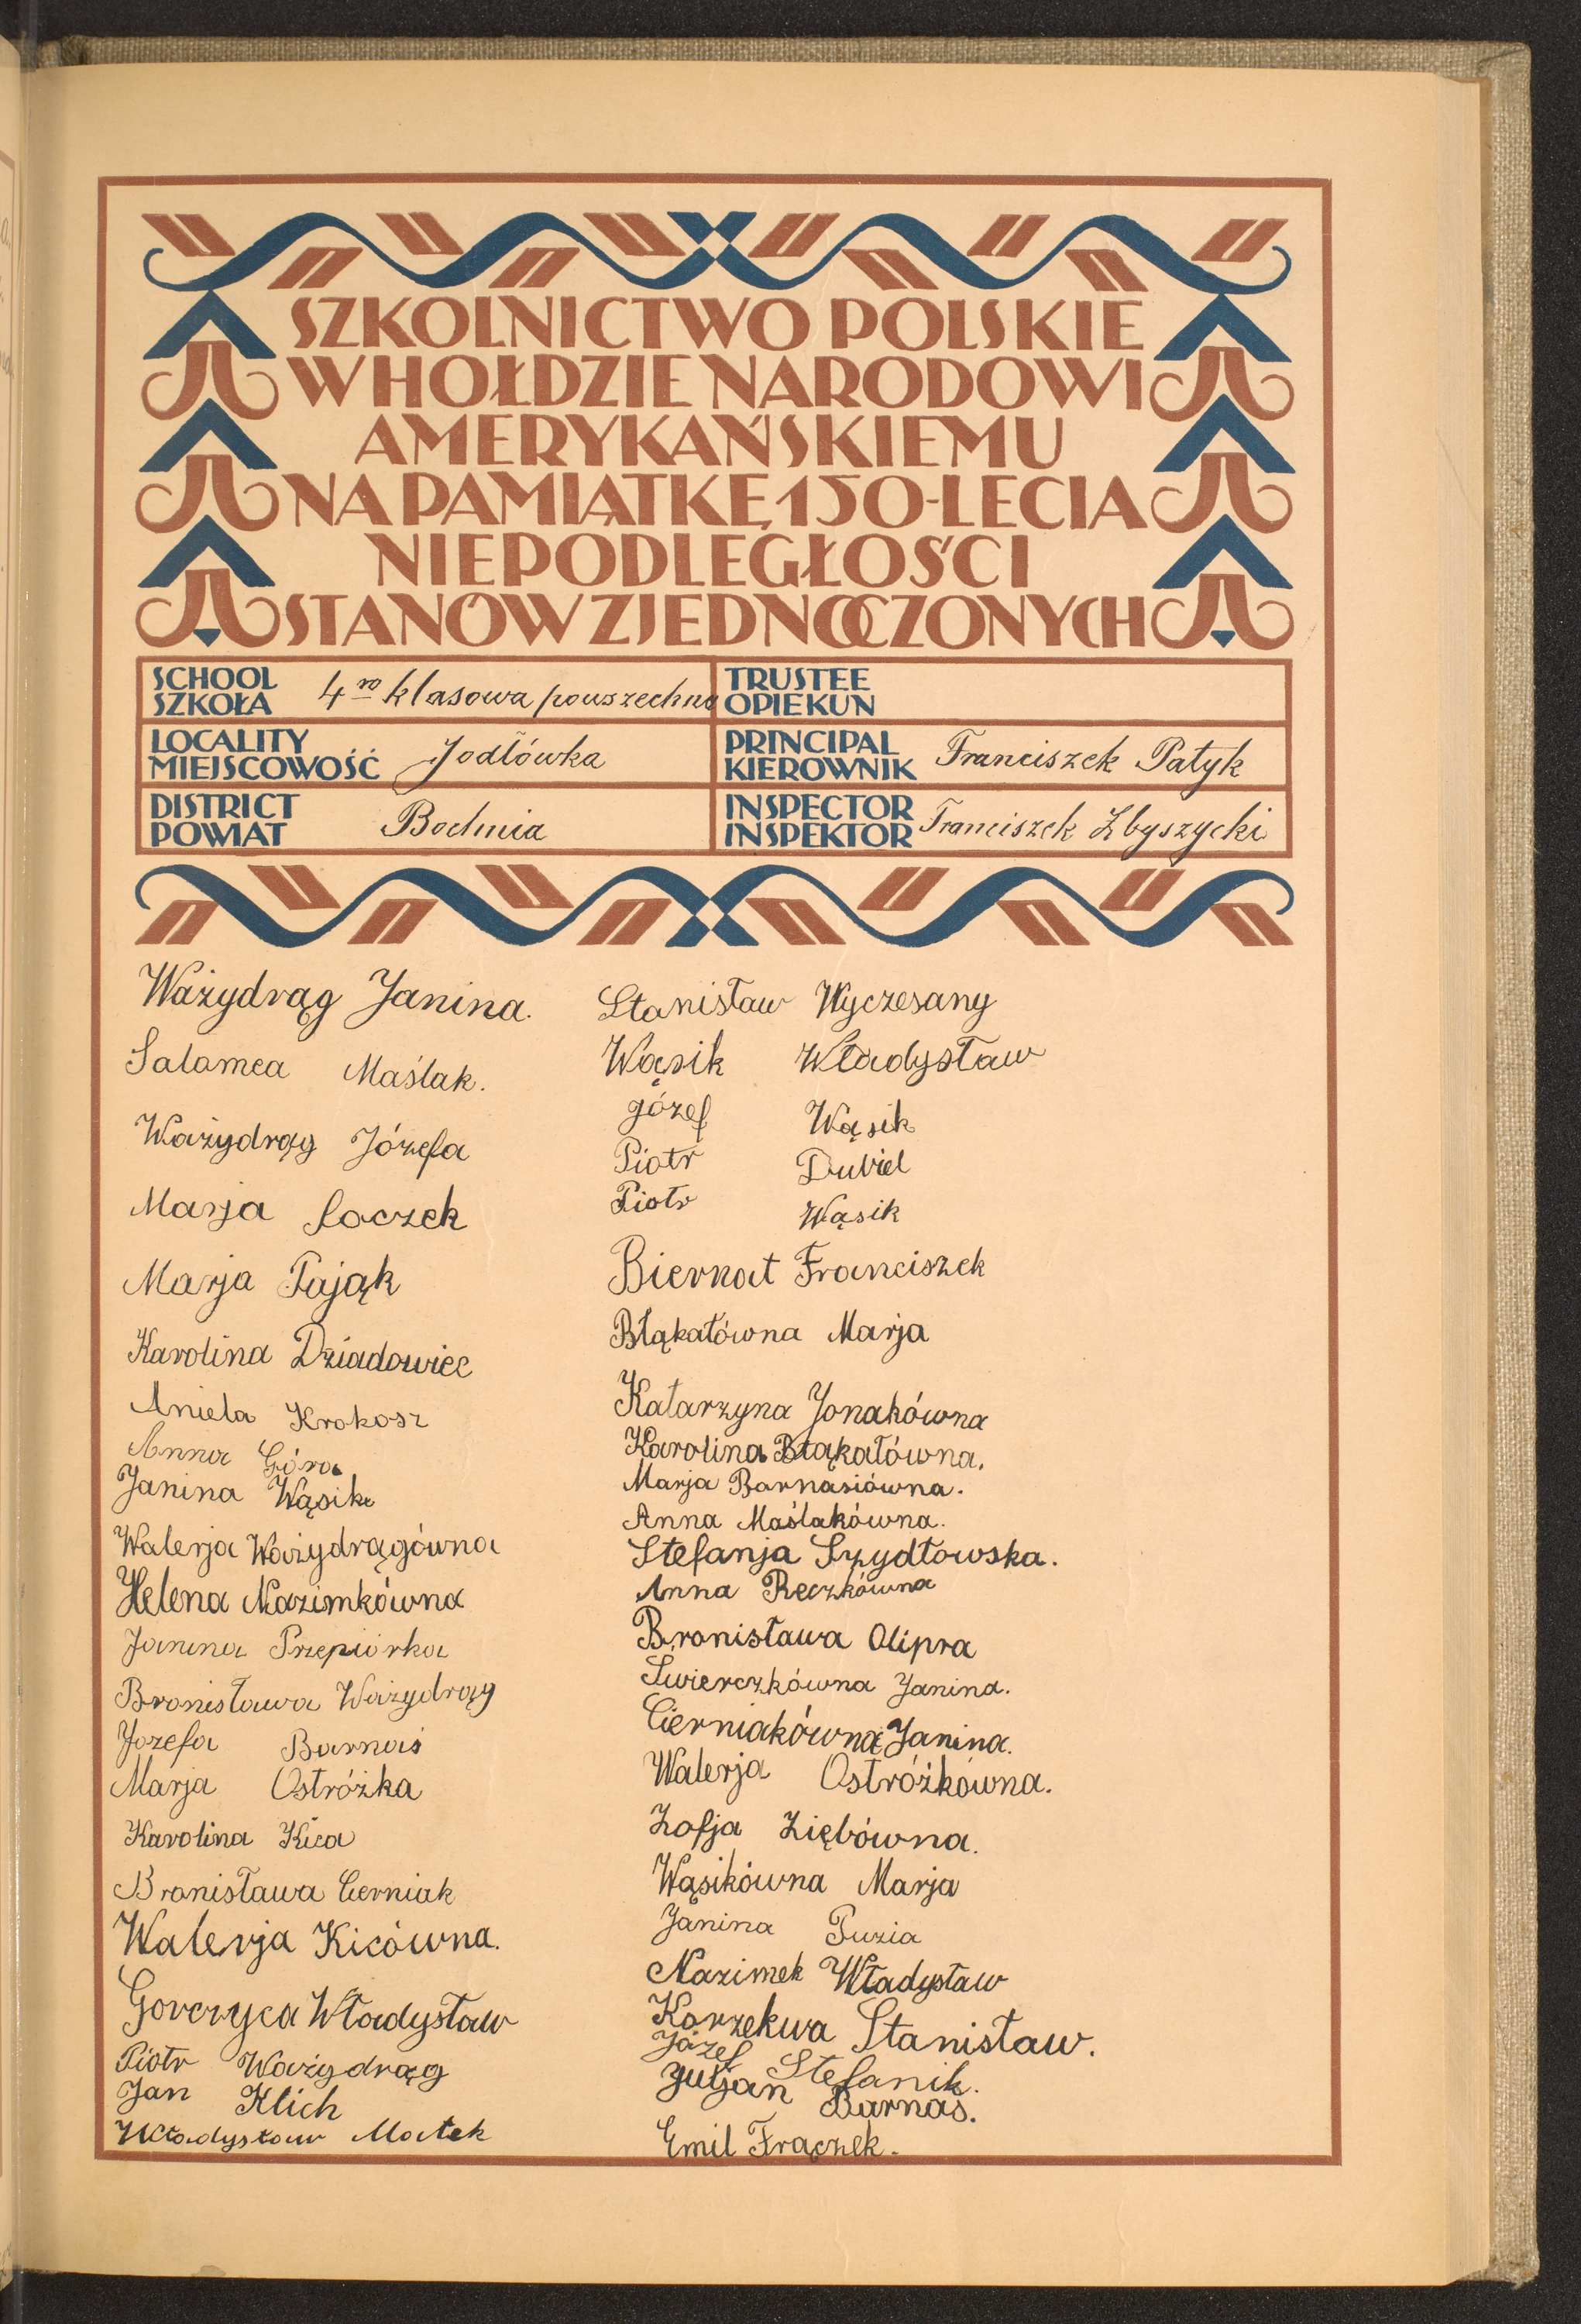 SZKOLNICTWO POLSKIE
W HOŁDZIE NARODOWI
AMERYKAŃSKIEMU
NA PAMIĄTKĘ 150-LECIA
NIEPODLEGŁOŚCI
STANÓW ZJEDNOCZONYCH
SCHOOL
SZKOŁA
4ro klasowa powszechna
TRUSTEE
OPIEKUN
LOCALITY
MIEJSCOWOŚĆ
Jodłówka
PRINCIPAL
KIEROWNIK
Franciszek Patyk
DISTRICT
POWIAT
Bochnia
INSPECTOR
INSPEKTOR
Franciszek Zbyszycki
Ważydrąg Janina.
Salomea Maślak.
Ważydrąg Józefa
Marja Loczek
Marja Pająk
Karolina Dziadowiec
Aniela Krokosz
Anna Góra
Janina Wąsik
Walerja Ważydrągówna
Helena Mazimkówna
Janina Przepiórka
Bronisława Ważydrąg
Józefa Barnaś
Marja Ostróżka
Karolina Kica
Bronisława Cierniak
Walerja Kicówna.
Gorczyca Władysław
Piotr Ważydrąg
Jan Klich
Władysław Matek
Stanisław Wyczesany
Wąsik Władysław
Józef Wąsik
Piotr Dubiel
Piotr Wąsik
Biernat Franciszek
Błąkałówna Marja
Katarzyna Jonakówna
Karolina Błąkałówna.
Marja Barnasiówna.
Anna Maślakówna.
Stefanja Szydłowska.
Anna Reczkówna
Bronisława Olipra
Świerczkówna Janina.
Cierniakówna Janina.
Walerja Ostróżkówna.
Zofja Ziębówna.
Wąsikówna Marja
Janina Puzia
Nazimek Władysław
Korzekwa Stanisław.
Józef Stefanik.
Juljan Barnaś.
Emil Frączek.